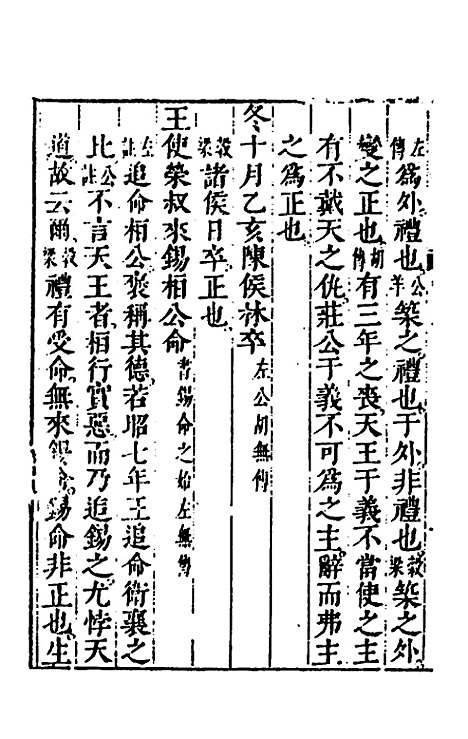 左傳爲外禮也公羊築之禮也于外非禮也穀梁築之外
變之正也胡傳有三年之喪天王于義不當使之主
有不戴天之仇莊公于義不可爲之主辭而弗主
之爲正也
冬十月乙亥陳侯林卒左公胡無傳
穀梁諸侯日卒正也
王使榮叔來錫桓公命書錫命之始左無傳
左註追命桓公褒稱其德若昭七年王追命衛襄之
比公註不言天王者桓行實惡而乃追錫之尤悖天
道故云爾穀梁禮有受命無來錫命錫命非正也生